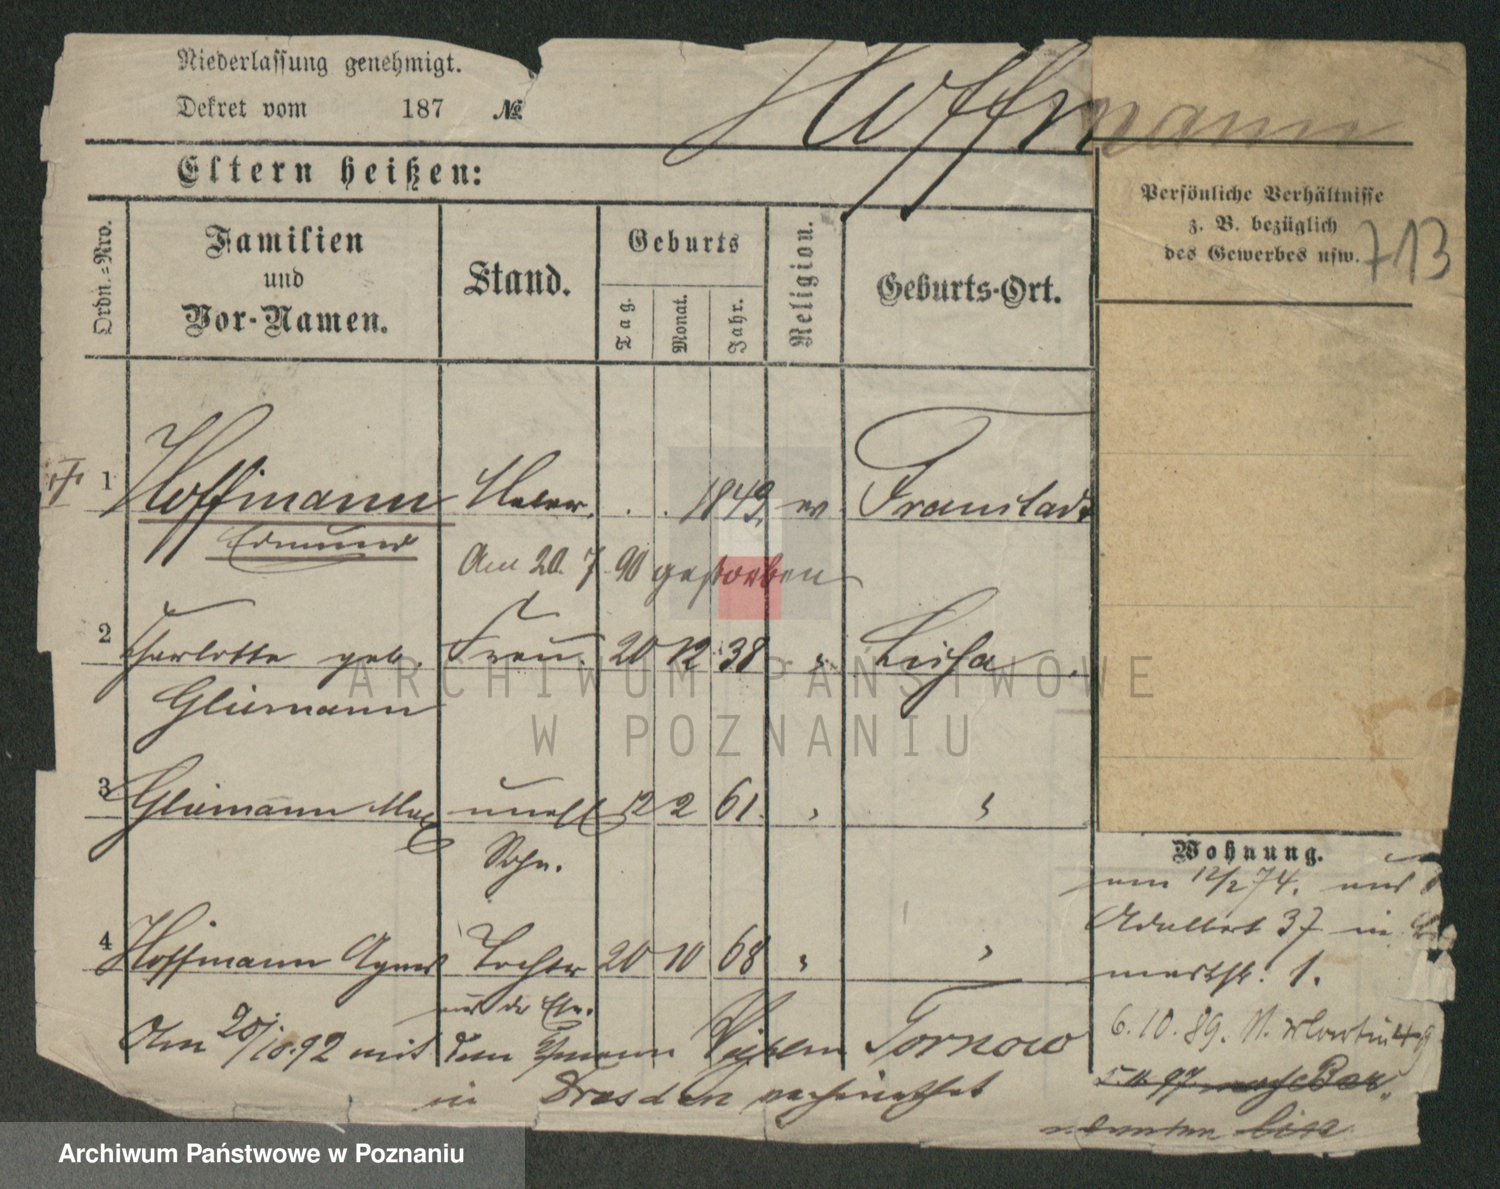 Niederlassung genehmigt.
Dekret vom 187 №
Hoffmann
Eltern heißen:
Ordn.=Nro.
Familien
und
Vor-Namen.
Stand.
Geburts
Tag.
Monat.
Jahr.
Religion.
Geburts-Ort.
Persönliche Verhältnisse
z. B. bezüglich
des Gewerbes usw.
713
1 Hoffmann . . 1842 ev Fraustadt
Edmund
Am 20. 7 90 gestorben
2 Charlotte geb. Frau. 20 12 38 " Lissa
Gliemann
3 Gliemann Max unehl 12 2 61. " "
Sohn.
4 Hoffmann Agnes Tochter 20 10 68 " "
aus der Ehe.
Am 20/10.92 mit dem Tornow
in Dresden verheirathet
Wohnung.
12/2 74.
Adalbert 37 in
1.
6.10.89. St. Martin
5.11.97
ARCHIWUM PAŃSTWOWE
W POZNANIU
Archiwum Państwowe w Poznaniu